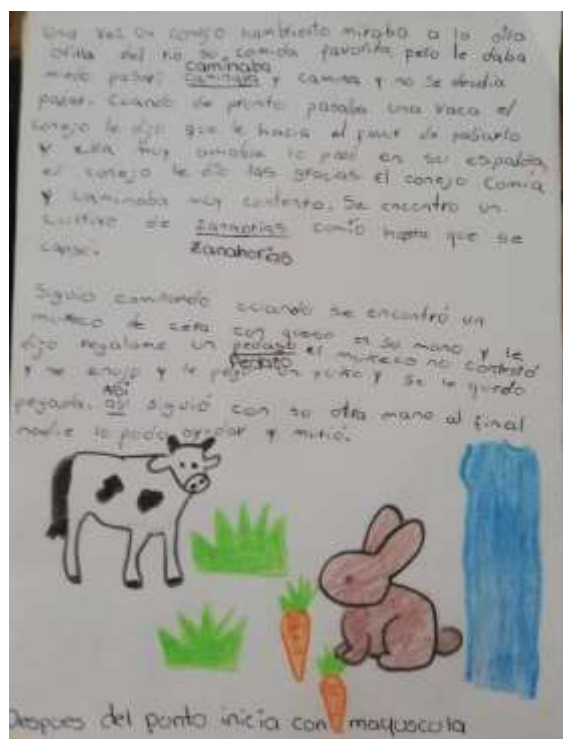 Una vez un conejo hambriento miraba a la otra
orilla del rio su comida favorita pero le daba
caminaba
miedo pasar. caminaba y camina y no se decidia
pasar. Cuando de pronto pasaba una vaca el
conejo le dijo que le hacia el favor de pasarlo
y ella muy amable lo paso en su espalda,
el conejo le dio las gracias el conejo comia
y caminaba muy contento. Se encontro un
cultivo de zanaorias comio hasta que se
canso.
zanahorias
Siguio caminando cuando se encontró un
muñeco de cera con queso en su mano y le
dijo regalame un pedaso el muñeco no contestó
pedazo
y se enojo y le pego un puño y se le quedo
Así
pegada. asi siguió con su otra mano al final
nadie lo pudo ayudar y murió.
Despues del punto inicia con mayuscula